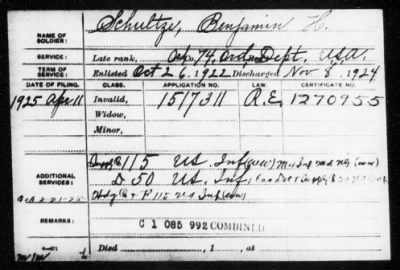 NAME OF SOLDIER: Schultze, Benjamin H.
SERVICE: Late rank, Co. 74, Ord. Dept. USA.
TERM OF SERVICE: Enlisted Oct 26, 1922 Discharged Nov 8, 1924
DATE OF FILING. CLASS. APPLICATION NO. LAW. CERTIFICATE NO.
1925 Apr 11 Invalid, 1517311 R.E. 1270955
Widow,
Minor,
ADDITIONAL SERVICES: 115 US. Inf (ww) Md Inf Md Ng (ww)
D 50 US. Inf,
Hdq Co & F 115 US Inf (ww)
REMARKS: C 1 085 992 COMBINED
Died , 1 , at